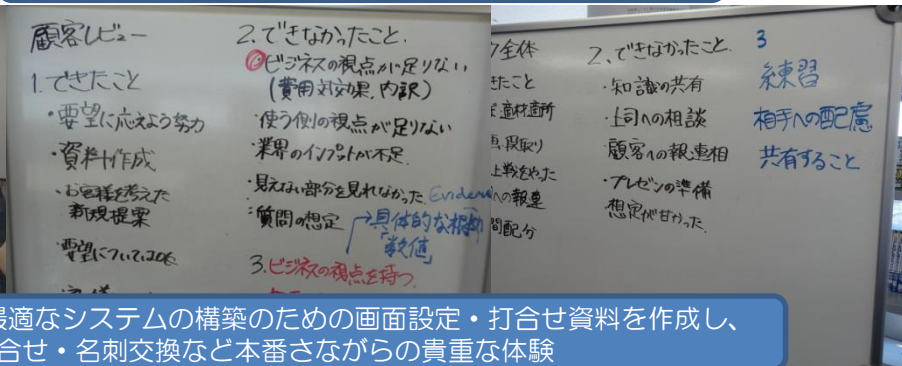 顧客レビュー
1.できたこと
・要望に応えよう努力
・資料作成
・お客様を考えた
新規提案
・要望については
2.できなかったこと.
ビジネスの視点が足りない
(費用対効果,内訳)
・使う側の視点が足りない
・業界のインプットが不足.
・見えない部分を見れなかった.
・質問の想定
→具体的な根拠
「数値」
3.ビジネスの視点を持つ.
全体
きたこと
適材適所
段取り
上戦をやった
への報連
間配分
2、できなかったこと.
・知識の共有
・上司への相談
・顧客への報連相
・プレゼンの準備
想定が甘かった.
3
練習
相手への配慮
共有すること
最適なシステムの構築のための画面設定・打合せ資料を作成し、
合せ・名刺交換など本番さながらの貴重な体験